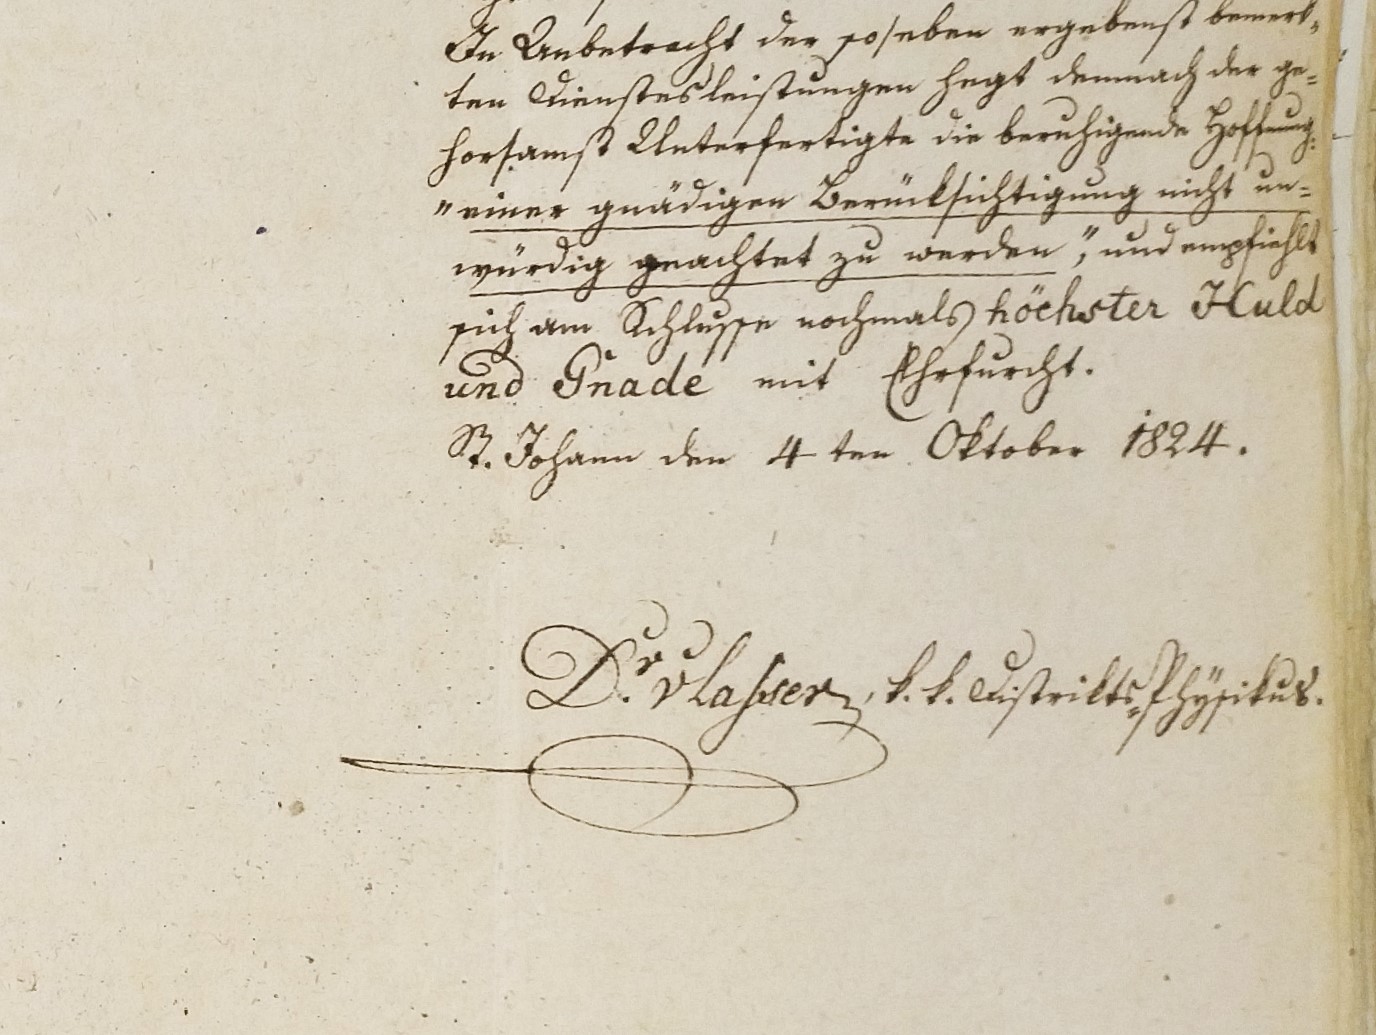 In Anbetracht der so eben ergebenst bemerk-
ten Dienstesleistungen hegt demnach der ge-
horsamst Unterfertigte die beruhigende Hoffnung:
"einer gnädigen Berücksichtigung nicht un-
würdig geachtet zu werden", und empfiehlt
sich am Schlusse nochmals höchster Huld
und Gnade mit Ehrfurcht.
St. Johann den 4ten Oktober 1824.
Dr. v Lasser, k. k. Distrikts-Physikus.